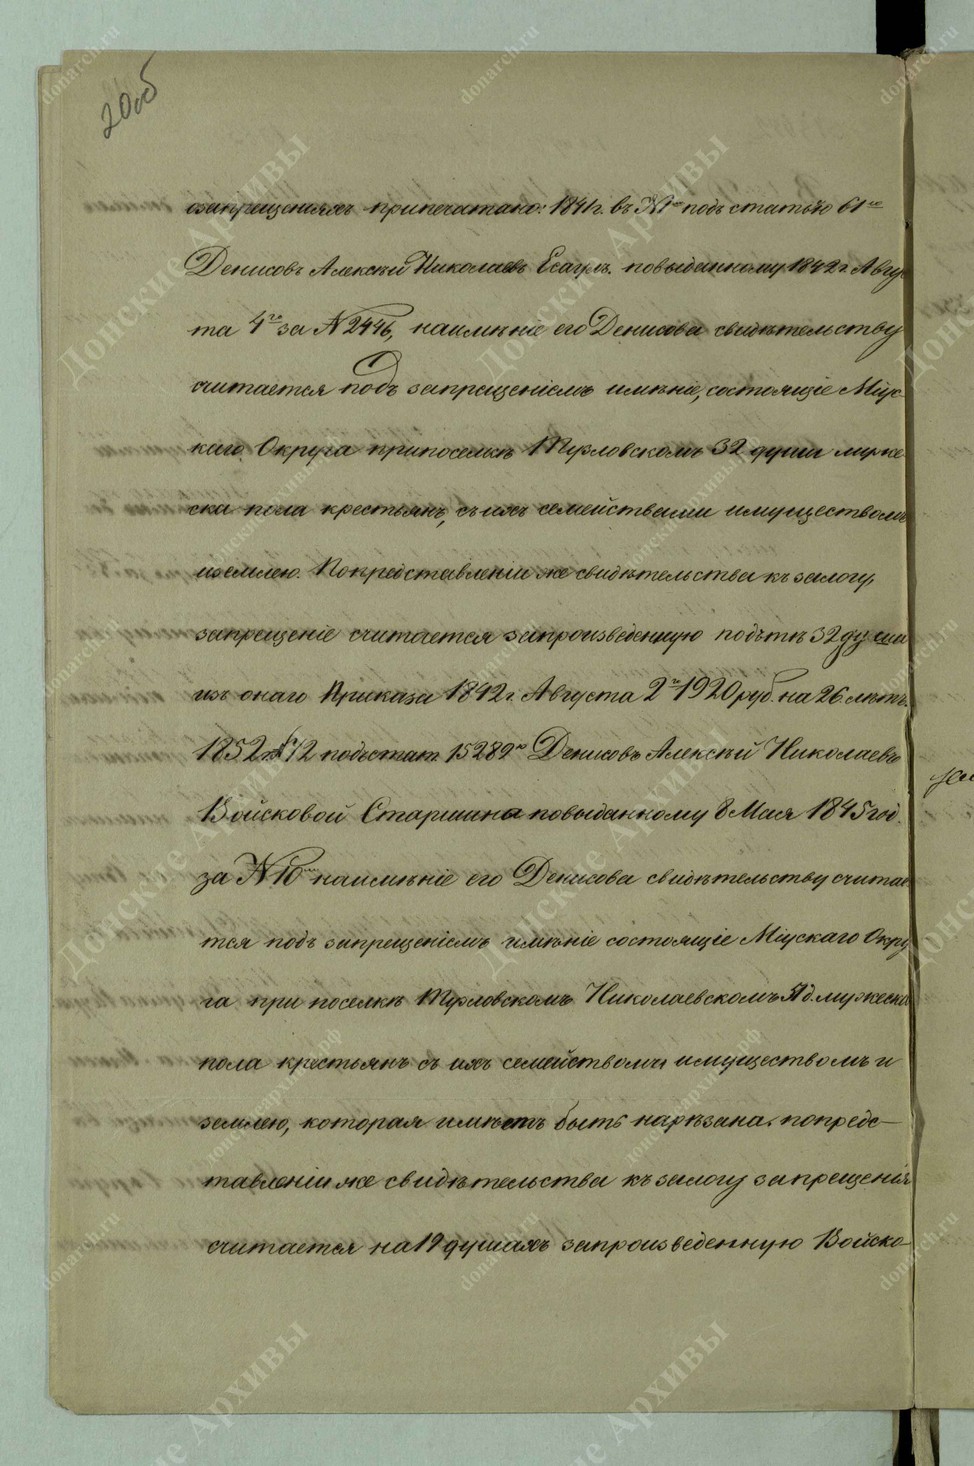 20об
озапрещенияхъ припечатано: 1841 г. въ № подъ статьею 61ю
Денисовъ Алексѣй Николаевъ Есаулъ. повыданному 1842 г. Авгус
та 4го за № 2446, наимѣніе его Денисова свидѣтельству
считается подъ запрещеніемъ имѣніе, состоящіе Міус-
каго Округа припоселкѣ Тузловскомъ 32 души муже
ска пола крестьянъ, съ ихъ семействами имуществомъ
иземлею. Попредставленіи же свидѣтельства къ залогу,
запрещеніе считается запроизведенную подътѣ 32 души
изъ онаго Приказа 1842 г. Августа 2го 1920 руб. на 26 лѣтъ.
1852 г. № 12 подъстат. 15289ю Денисовъ Алексѣй Николаевъ
Войсковой Старшина повыданному 8 Мая 1845 год.
за № 10 наимѣніе его Денисова свидѣтельству считае
тся подъ запрещеніемъ имѣніе состоящіе Міускаго Окру
га при поселкѣ Тузловскомъ Николаевскомъ д. мужеска
пола крестьянъ съ ихъ семействомъ, имуществомъ и
землею, которая имѣетъ быть нарѣзана. попредс-
тавленіи же свидѣтельства къ залогу запрещенія
считается на 19 душахъ запроизведенную Войско-